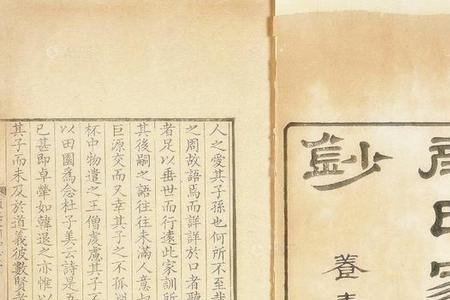 氏
家
養
人之愛其子孫也何所不至哉
之周故語焉而詳詳於口者聽
者足以垂世而行遠此家訓所
其後嗣之語往往未滿人意
巨源交而又幸其子之不孤
杯中物遺之王僧虔慮其子不
以田園為念杜子美云詩是吾
已甚即卓犖如韓退之亦惟以
其子而未及於道義彼數賢者